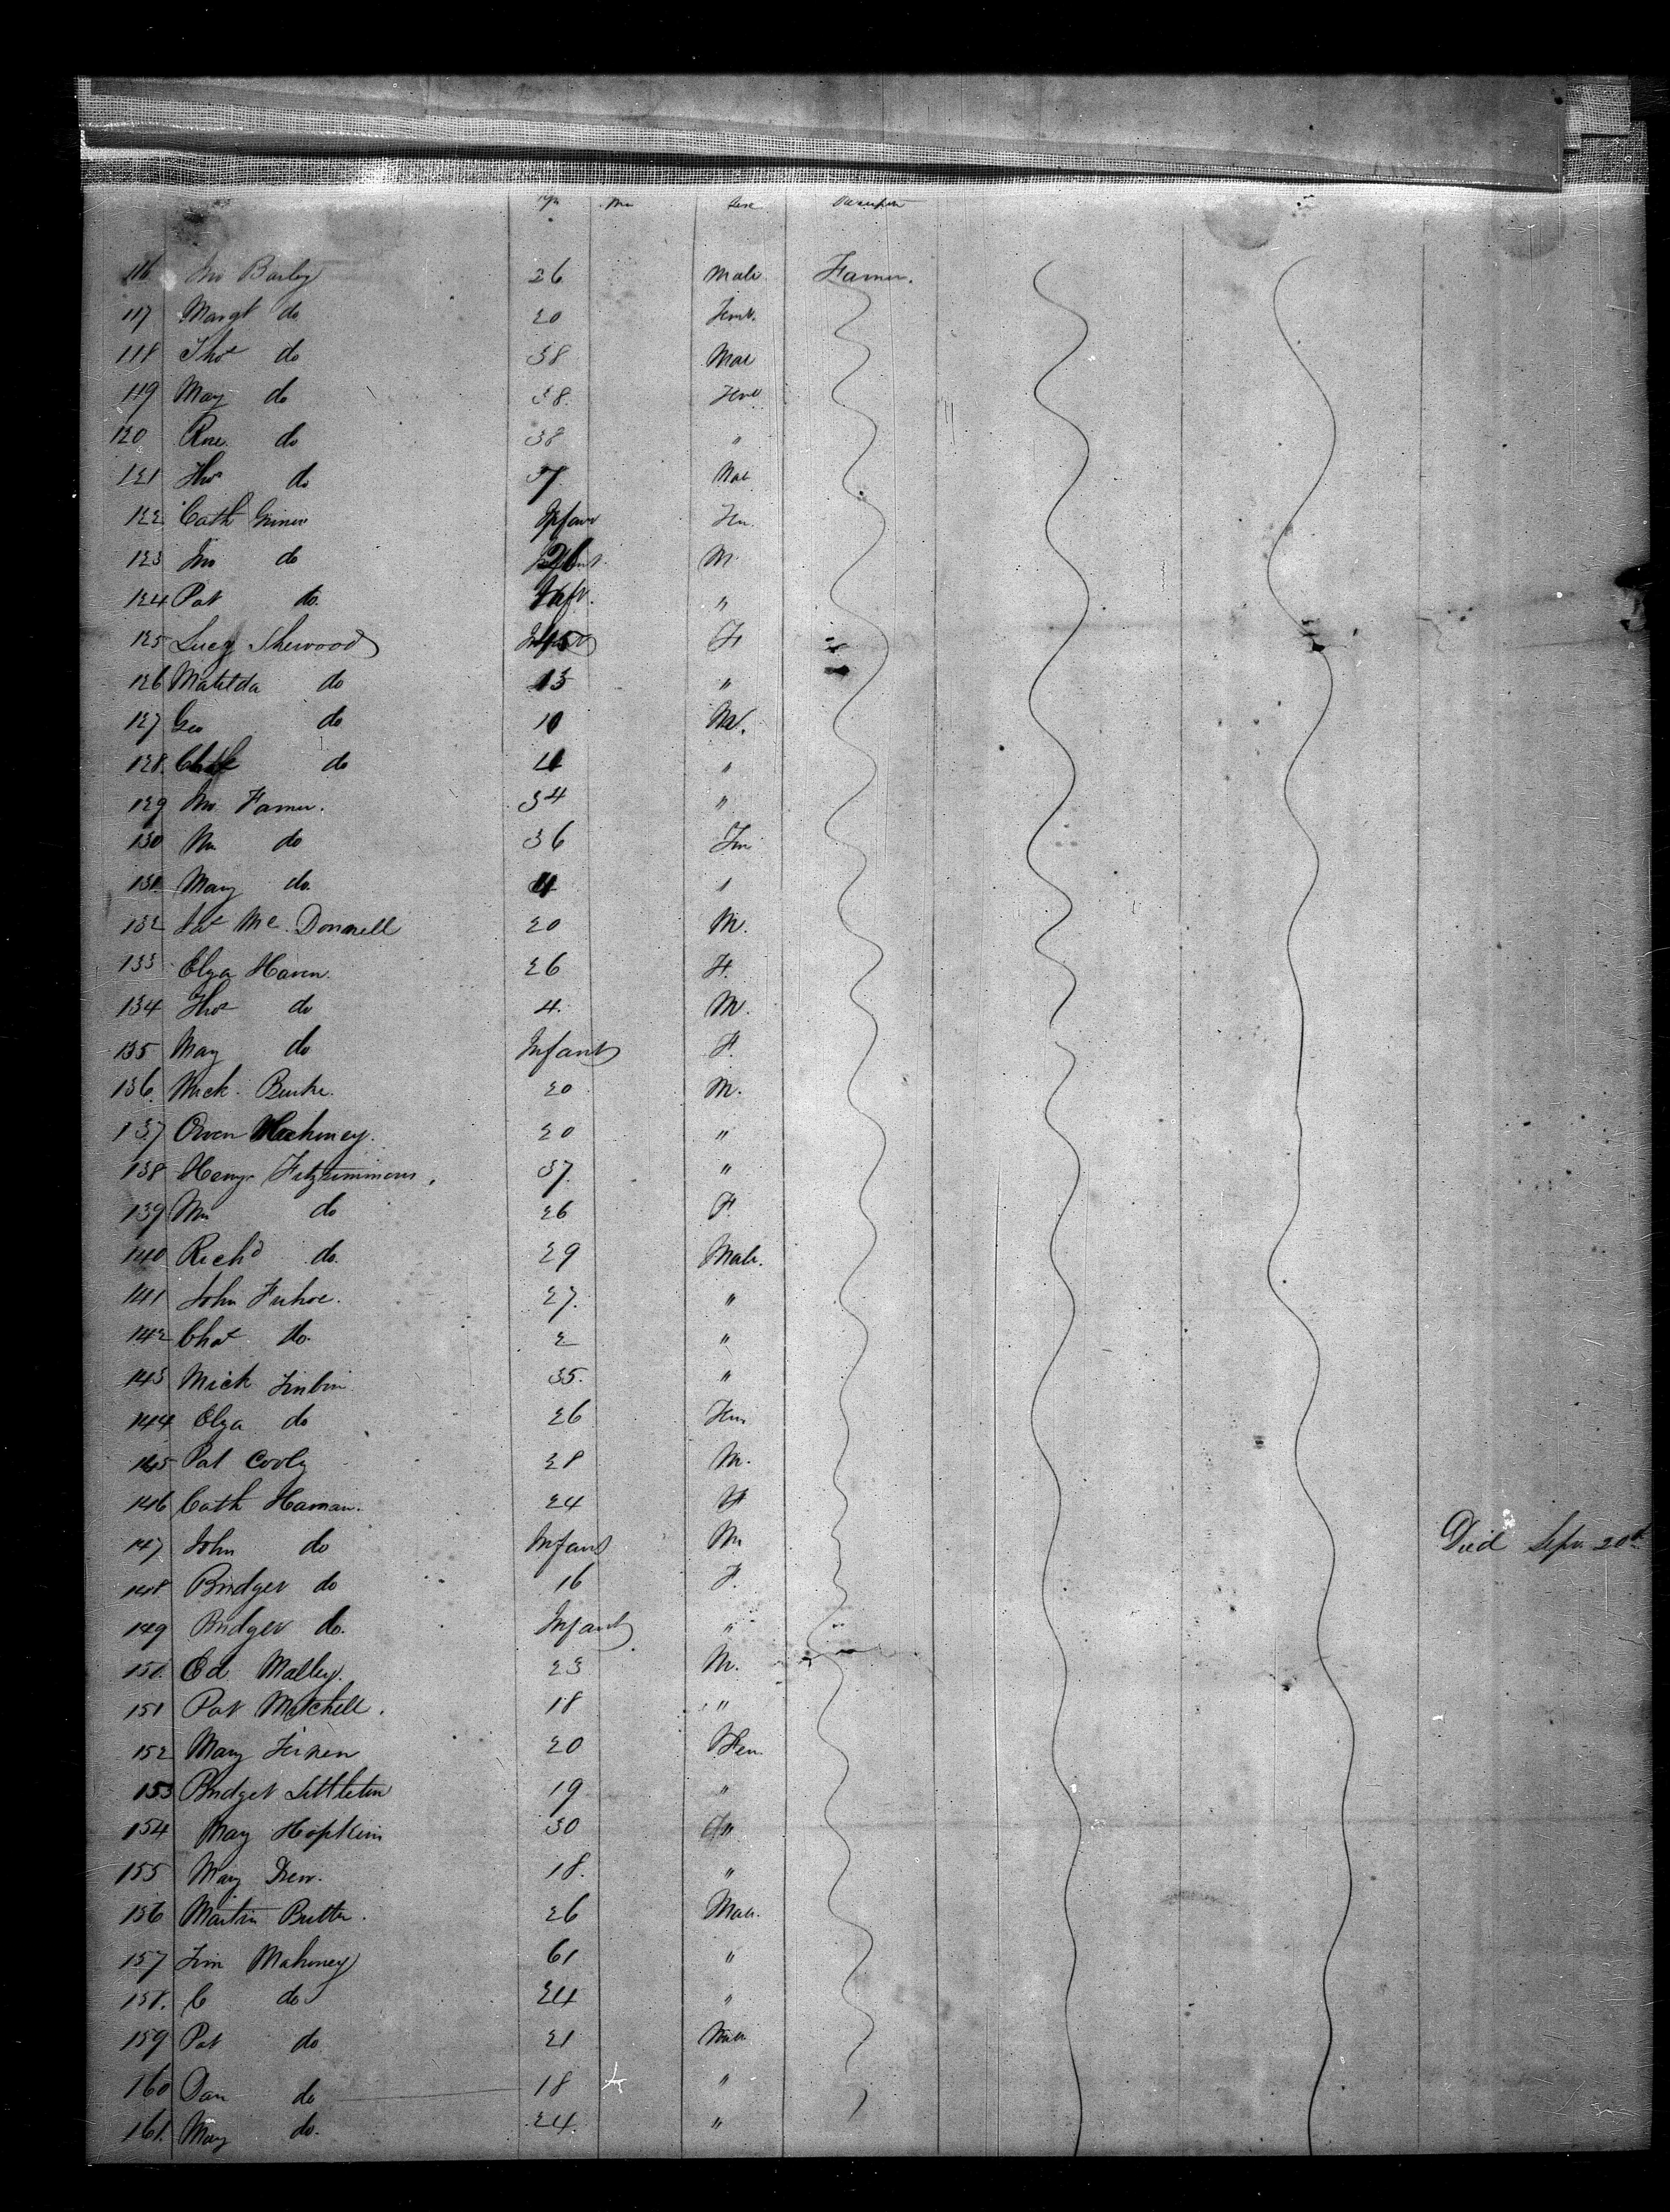 Yrs Mn Sex Occupation
116 Jno Barley 26 Male Farmer.
117 Margt do 20 Fem.
118 Thos do 38 Mal
119 Mary do 38. Fem
120 Rose do 38 "
121 Thos do 37. Mal
122 Cath Infant Fem.
123 Jno do 26 M.
124 Pat do. Inft. "
125 Lucy Sherwood 45 F
126 Matilda do 13 "
127 Geo do 10 M.
128. do 4 "
129 Jno Farmer. 34 "
130 Mrs do 36 Fem
131. Mary do. "
132 Jas Mc. Donnell 20 M.
133 Elza Haven. 26 F.
134 Thos do 4. M.
135 May do Infant F.
136. Mick. Burke. 20 M.
137 Owen Mahoney. 20 "
138 Henry Fitzsimmons. 37. "
139 Mrs do 26 F.
140 Richd do. 29 Male.
141 John 27. "
142 Chas do. 2 "
143 Mick 35. "
144 Elza do 26 Fem
145 Pat Cooly 28 M.
146 Cath Hannan. 24 F
147 John do Infant M Died Sepr 20th
148 Bridget do 16 F.
149 Bridget do. Infant "
150. Ed Malley. 23 M.
151 Pat Mitchell. 18 "
152 Mary 20 Fem
153 Bridget Littleton 19 "
154 May Hopkins 30 "
155 Mary Drew. 18. "
156 Martin Butler. 26 Male.
157 Tim Mahoney 61 "
158. C do 24 "
159 Pat do 21 Male
160 Dan do 18 "
161. May do. 24. "